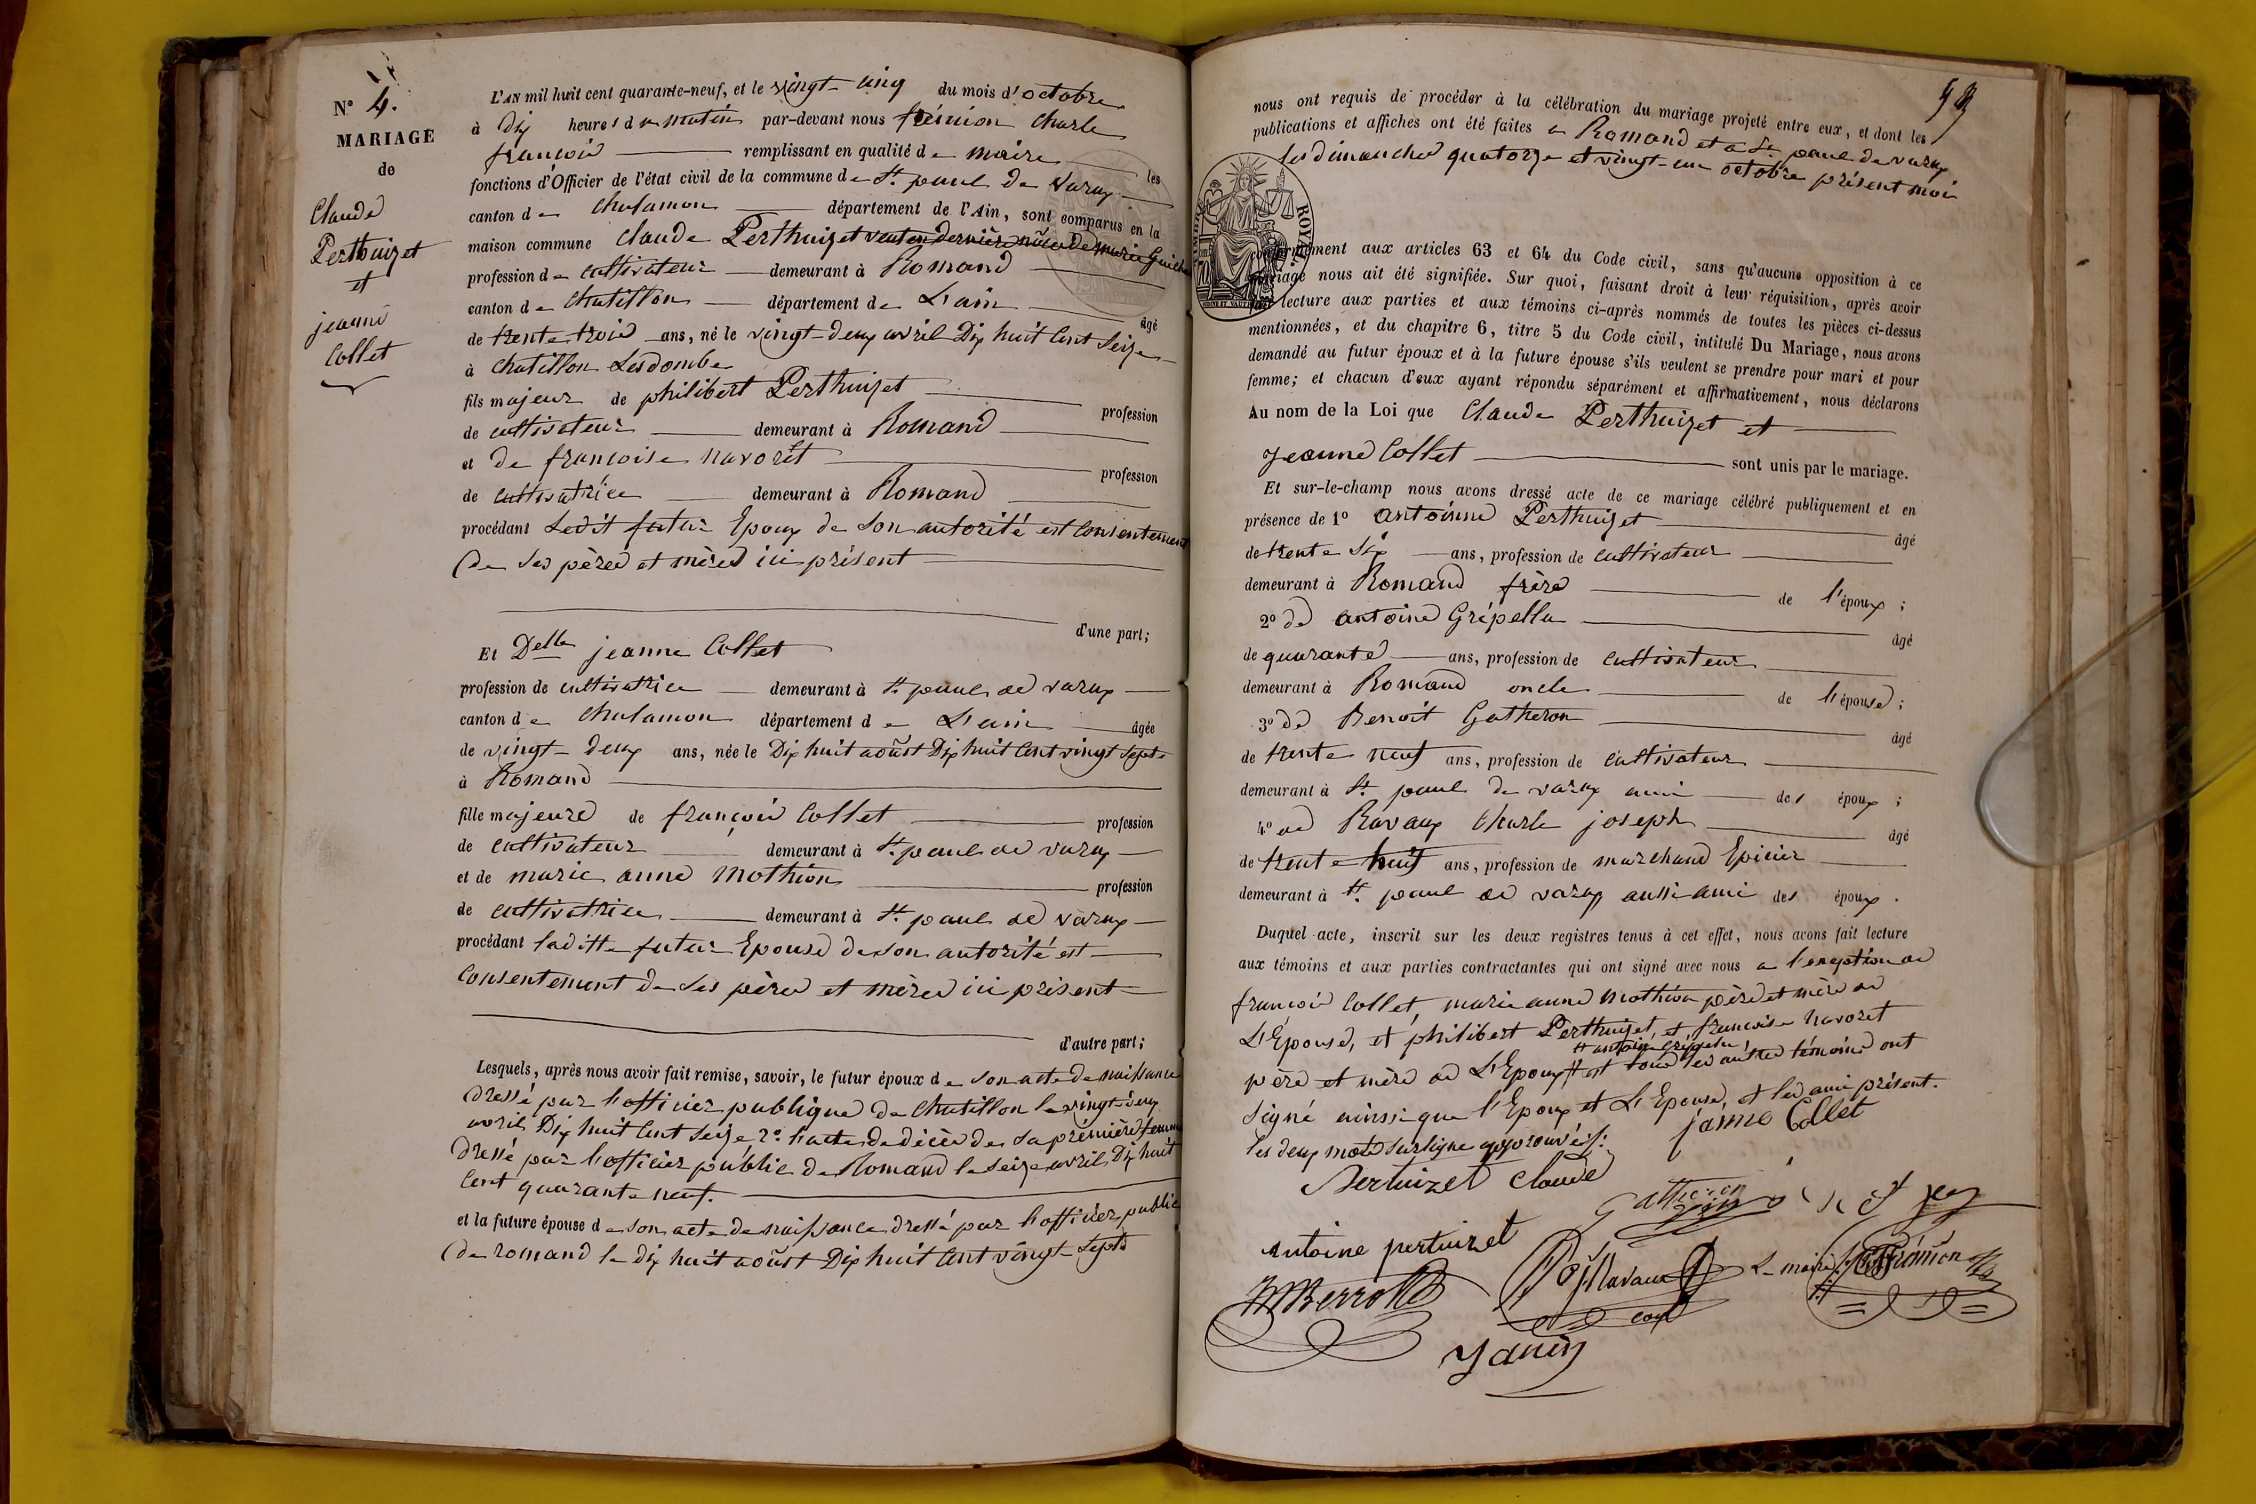 N° 4.
MARIAGE
de
Claude
Perthuizet
et
jeanne
Collet
L'AN mil huit cent quarante-neuf, et le vingt-cinq du mois d'octobre
à dix heures du matin par-devant nous frémion Charle
françois remplissant en qualité de maire les
fonctions d'Officier de l'état civil de la commune de St. paul de Varax
canton de Chalamon département de l'Ain, sont comparus en la
maison commune Claude Perthuizet veuf en dernière nôces de marie
profession de cultivateur demeurant à Romand
canton de Chatillon département de L'ain âgé
de trente trois ans, né le vingt-deux avril Dix huit Cent Seize
à Chatillon Lesdombe
fils majeur de philibert Perthuizet profession
de cultivateur demeurant à Romand
et de françoise navoret profession
de cultivatrice demeurant à Romand
procédant Ledit futur Epoux de Son autorité est Consentement
de Ses pères et mères ici présent
d'une part;
Et Delle jeanne Collet
profession de cultivatrice demeurant à St. paul de varax
canton de Chalamon département de L'ain âgée
de vingt-deux ans, née le Dix huit août Dix huit Cent vingt Septe
à Romand
fille majeure de françois Collet profession
de cultivateur demeurant à St. paul de varax
et de marie anne Mothion profession
de cultivatrice demeurant à St. paul de varax
procédant laditte futur Epouse de son autorité est
Consentement de Ses pères et mères ici présent
d'autre part;
Lesquels, après nous avoir fait remise, savoir, le futur époux de son acte de naissance
dressé par l'officier publique de Chatillon le vingt-deux
avril Dix huit Cent Seize 2°. l'acte de dècès de sa première femme
dressé par l'officier public de Romand le seize avril Dix huit
Cent quarante neuf.
et la future épouse de son acte de naissance dressé par l'officier public
de romand le dix huit août Dix huit Cent vingt-Septe
nous ont requis de procéder à la célébration du mariage projeté entre eux, et dont les
publications et affiches ont été faites a Romand et a St. paul de varax
les dimanches quatorze et vingt-un octobre présent mois
conformément aux articles 63 et 64 du Code civil, sans qu'aucune opposition à ce
mariage nous ait été signifiée. Sur quoi, faisant droit à leur réquisition, après avoir
fait lecture aux parties et aux témoins ci-après nommés de toutes les pièces ci-dessus
mentionnées, et du chapitre 6, titre 5 du Code civil, intitulé Du Mariage, nous avons
demandé au futur époux et à la future épouse s'ils veulent se prendre pour mari et pour
femme; et chacun d'eux ayant répondu séparément et affirmativement, nous déclarons
Au nom de la Loi que Claude Perthuizet et
Jeanne Collet sont unis par le mariage.
Et sur-le-champ nous avons dressé acte de ce mariage célébré publiquement et en
présence de 1° antoinne Perthuizet âgé
de trente Six ans, profession de cultivateur
demeurant à Romand frère de l'époux;
2° de antoine Grépella âgé
de quarante ans, profession de cultivateur
demeurant à Romand oncle de l'épouse;
3° de Benoit Gatheron âgé
de trente neuf ans, profession de cultivateur
demeurant à St. paul de varax ami des époux;
4° de Ravaux Charle joseph âgé
de trente huit ans, profession de marchand Epicier
demeurant à St. paul de varax aussi ami des époux.
Duquel acte, inscrit sur les deux registres tenus à cet effet, nous avons fait lecture
aux témoins et aux parties contractantes qui ont signé avec nous a l'exception de
françois Collet, marie anne Mothion père et mère de
L'Epouse, et philibert Perthuizet, et francoise Navoret
père et mère de L'Epoux et tous les autres témoins ont
signé ainssi que l'Epoux et L'Epouse, et les ami présent.
les deux mots surligne approuvés:
janne Collet
Pertuizet Claude
Gatheron
Antoine pertuizet
Ravaux
Le maire
Frémion
Janin